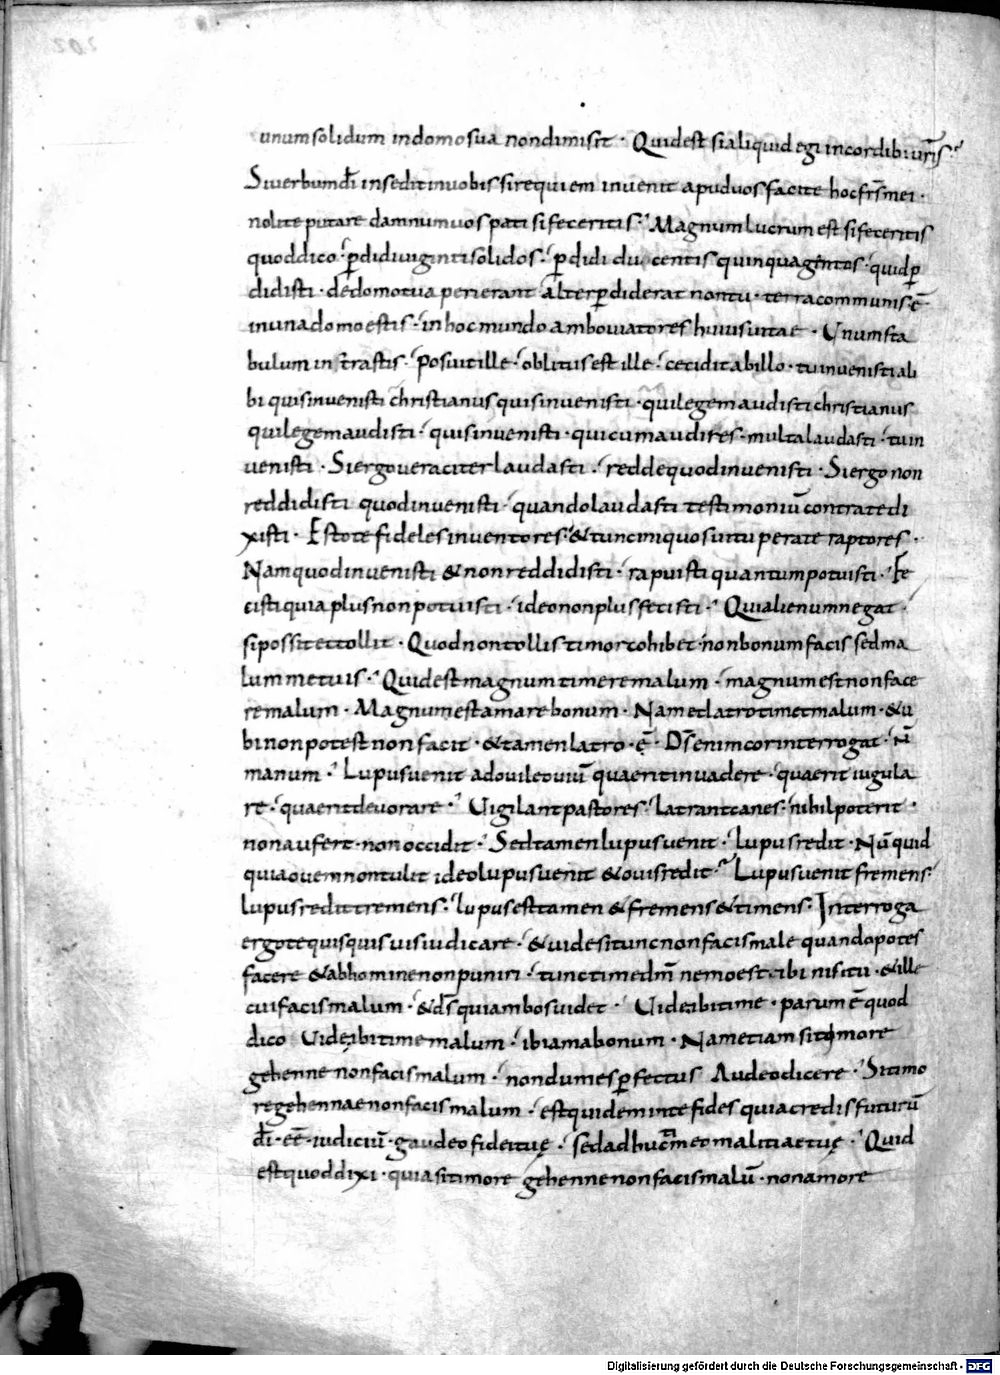 unum solidum in domo sua non dimisit · Quid est si aliquid egi in cordib; ur̄is
Si uerbum dī insedit in uobis si requiem inuenit apud uos facite hoc fr̄s mei ·
nolite putare damnum uos pati si feceritis · Magnum lucrum est si feceritis
quod dico · ꝑdidi uiginti solidos · ꝑdidi ducentis quinquagentos · quid ꝑ
didisti · de domo tua perierant alter ꝑdiderat non tu · terra communis ē
in una domo estis · in hoc mundo ambo uiatores huius uitae · Unum sta
bulum intrastis · Posuit ille · oblitus est ille · cecidit ab illo · tu inuenisti ali
bi quis inuenisti christianus quis inuenisti · qui legem audisti christianus
qui legem audisti · quis inuenisti · qui cum audires · multa laudasti · tu in
uenisti · Si ergo ueraciter laudasti · redde quod inuenisti · Si ergo non
reddidisti quod inuenisti · quando laudasti testimoniū contra te di
xisti · Estote fideles inuentores · & tunc iniquos uituperate raptores ·
Nam quod inuenisti & non reddidisti · rapuisti quantum potuisti · Fe
cisti quia plus non potuisti · ideo non plus fecisti · Qui alienum negat ·
si possit et tollit · Quod non tollis timor cohibet · non bonum facis sed ma
lum metuis · Quid est magnum timere malum · magnum est non face
re malum · Magnum est amare bonum · Nam et latro timet malum · & u
bi non potest non facit · & tamen latro · ē · Ds̄ enim cor interrogat · n̄
manum · Lupus uenit ad ouile ouiū quaerit inuadere · quaerit iugula
re · quaerit deuorare · Uigilant pastores · latrant canes · nihil poterit ·
non aufert · non occidit · Sed tamen lupus uenit · lupus redit · Nū quid
quia ouem non tulit ideo lupus uenit & ouis redit · Lupus uenit fremens
lupus redit tremens · lupus est tamen & fremens & timens · Interroga
ergo te quisquis uis iudicare · & uide si tunc non facis male quando potes
facere & ab homine non puniri · tunc times dm̄ nemo est · ibi nisi tu · & ille
cui facis malum · & ds̄ qui ambos uidet · Uide ibi time · parum ē quod
dico Uide ibi time malum · ibi ama bonum · Nam etiam si timore
gehenne non facis malum · nondum es ꝑfectus Audeo dicere · Si timo
re gehennae non facis malum · est quidem in te fides quia credis futurū
dī · eē · iudiciū · gaudeo fidei tuę · sed adhuc timeo malitiae tuę · Quid
est quod dixi · quia si timore gehenne non facis malū · non amore
Digitalisierung gefördert durch die Deutsche Forschungsgemeinschaft - DFG